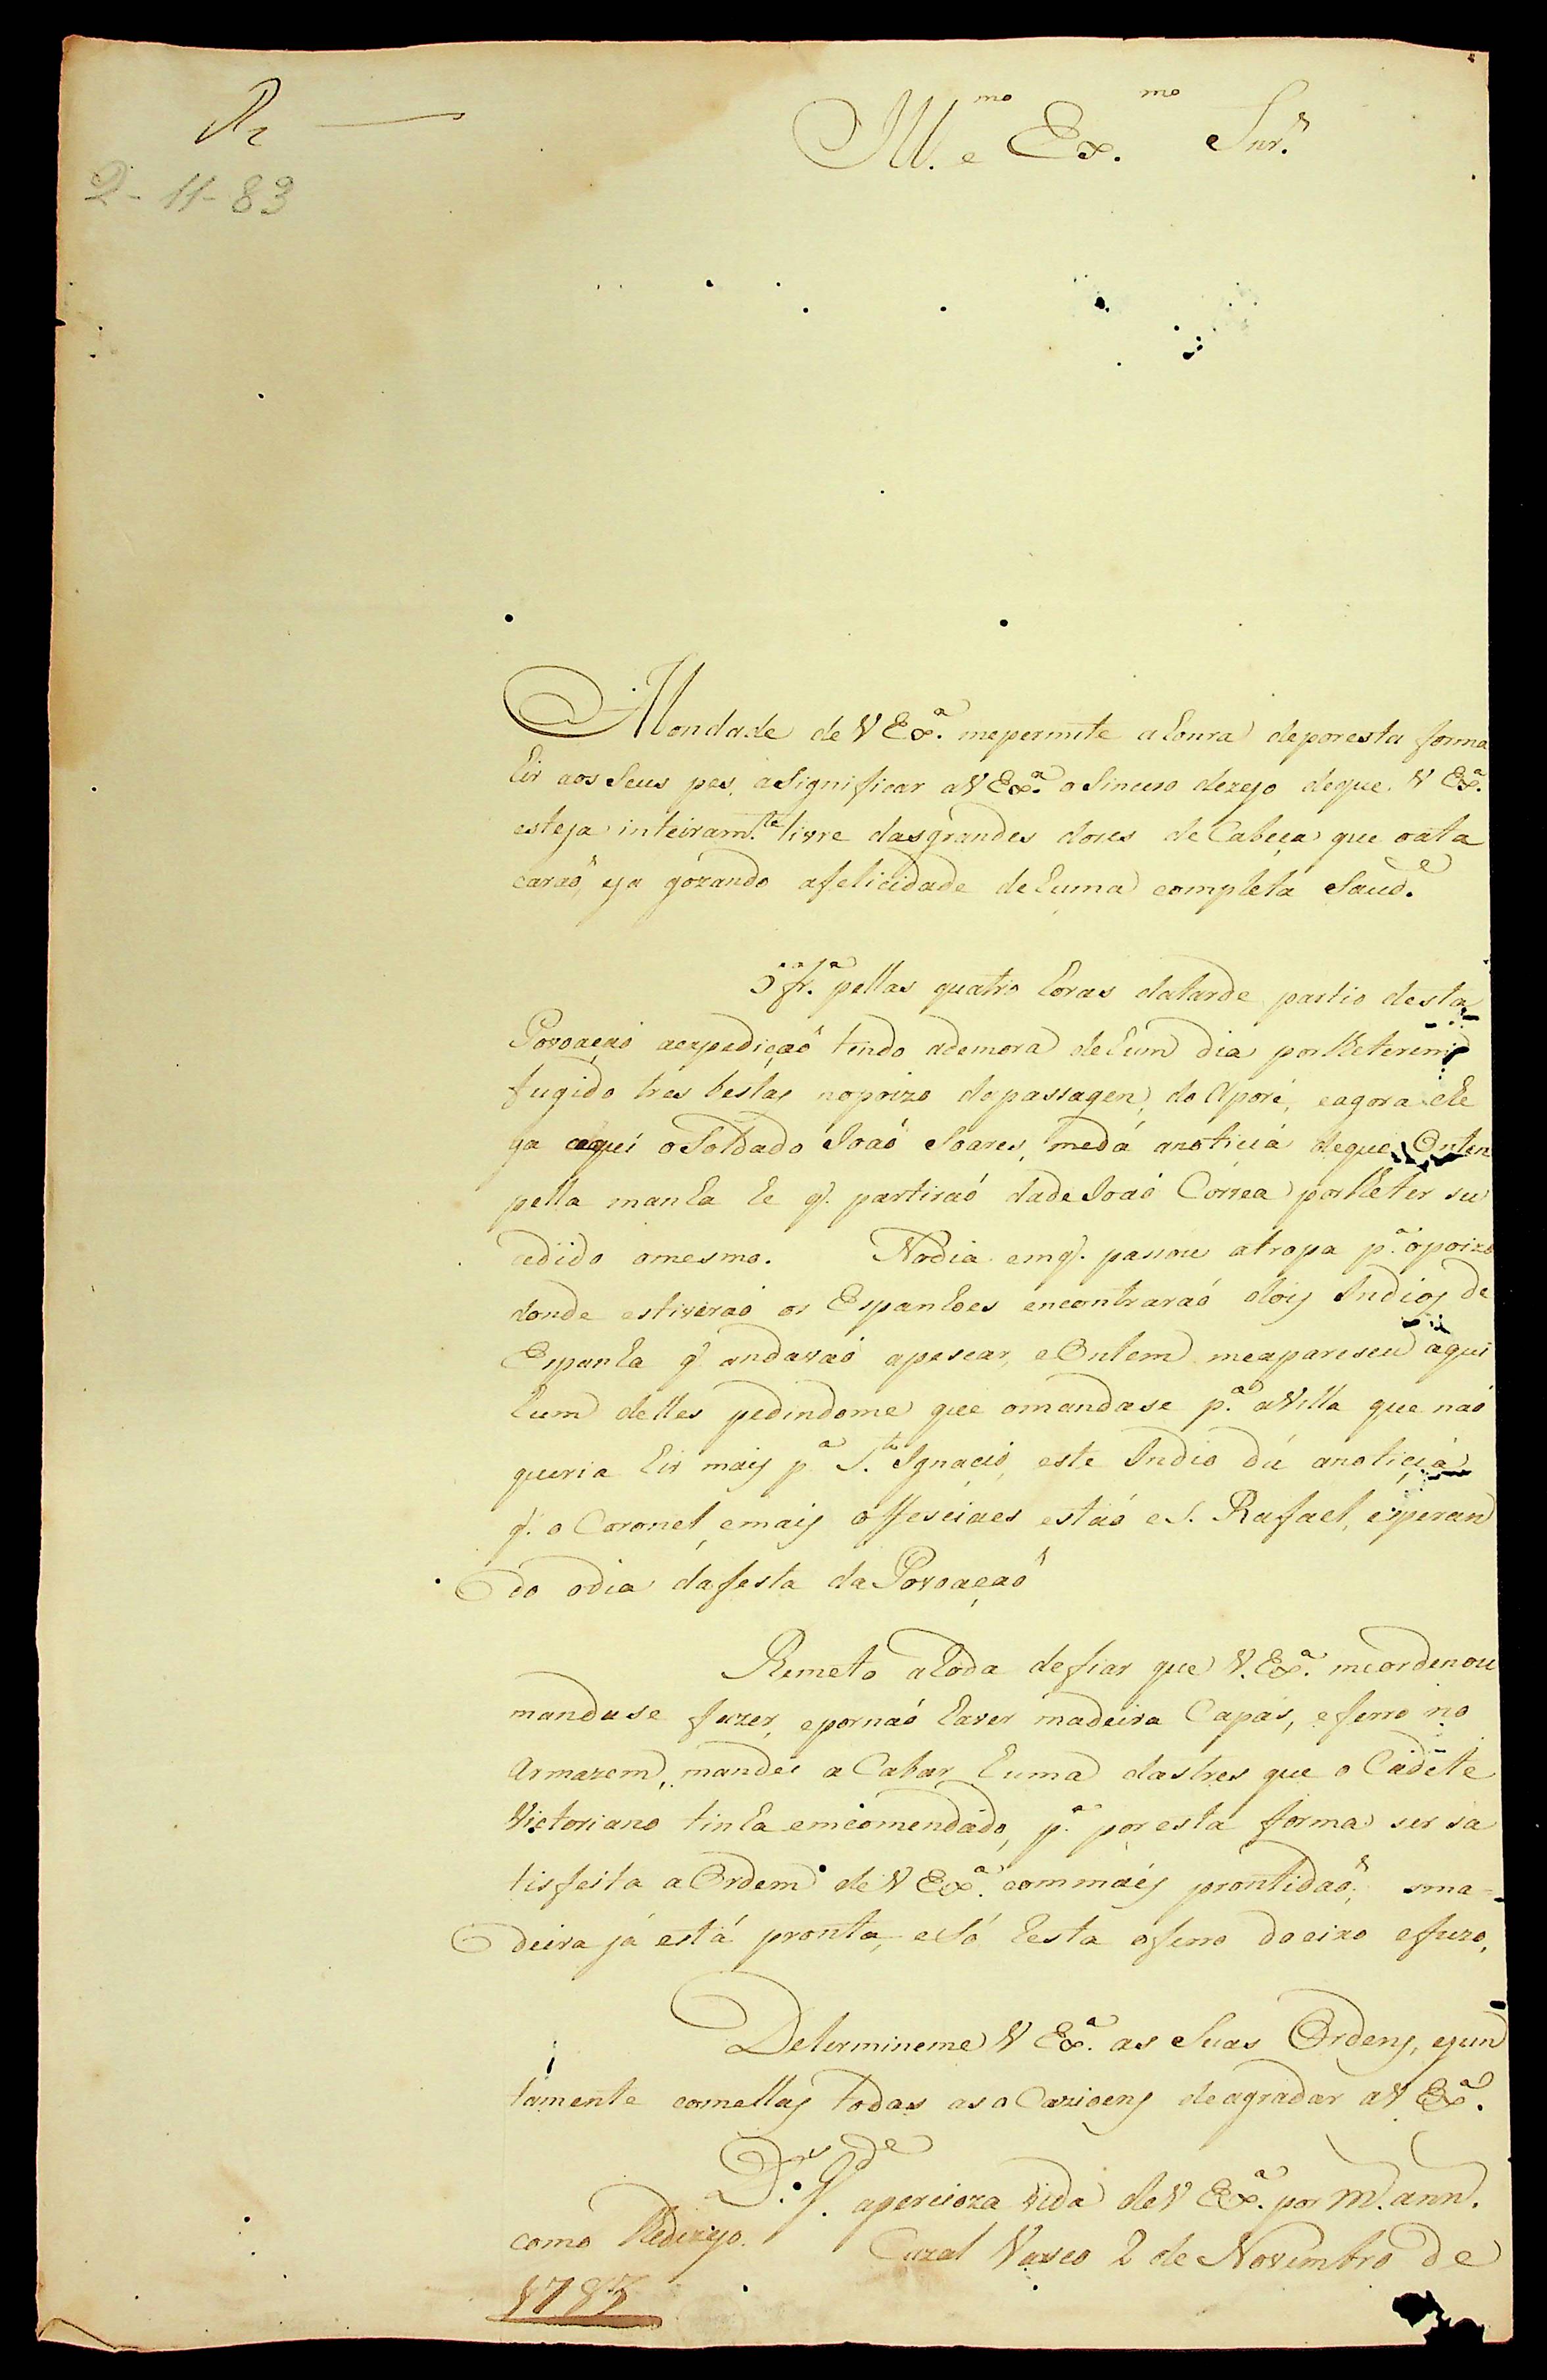 R.
2-11-83
Ill.mo e Ex.mo Snr.
A Bondade de V Ex.ª mepermite ahonra deporesta forma
hir aos Seus pes, asignificar aV Ex.ª o Sincero dezejo deque V Ex.ª
esteja inteiram.te livre dasgrandes dores deCabeça que oata
caraõ, eja gózando afelicidade dehuma completa Saud.e
5ª fr.ª pellas quatro horas datarde partio desta
Povoaçaõ aexpediçaõ tendo ademora dehum dia porlheterem
fugido tres bestas nopoizo dapassagem do Aporé, eagora che
ga aqui oSoldado Joaõ Soares, medá anoticia deque Ontem
pella manha he q. partiraõ dade Joaõ Corrêa porlheter su
cedido omesmo. Nodia emq. pasou atropa p.ª opoizo
donde estiveraõ os Espanhoes encontraraõ dois Indios de
Espanha q. andavaõ apescar, eOntem meapareseu aqui
hum delles pedindome que omandase p.ª aVilla que naõ
queria hir mais p.ª S.to Ignacio, este Indio dá anoticia
q. o Coronel, emais offeciaes estaõ e S. Rafael, esperan
do odia dafesta daPovoaçaõ
Remeto aRoda defiar que V. Ex.ª meordenou
mandase fazer, epornaõ haver madeira Capás, eferro no
Armazem, mandei aCabar huma dastres que o Cadete
Victoriano tinha emcomendado, p.ª poresta forma ser sa
tisfeita aOrdem deV Ex.ª commais prontidaõ; ama-
deira já está pronta, eSó resta oferro doeixo efuzo,
Determineme V Ex.ª as Suas Ordens, ejun
tamente comellas todas asoCazioens deagradar aV Ex.ª
D.s g.de apercioza vida deV Ex.ª por m. ann.
como lhedezejo. Cazal Vasco 2 de Novembro de
1783